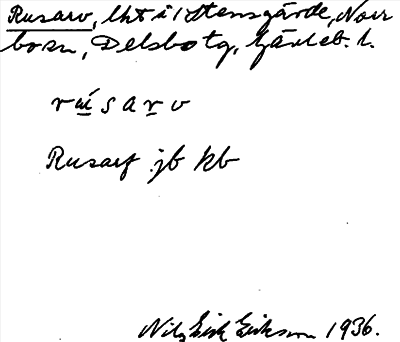 Rusarv, lht i Stensgårde, Norr
bosn, Delsbo tg, Gävleb. l.
rusarv
Rusarf jb kb
Nils Erik Eriksson 1936.